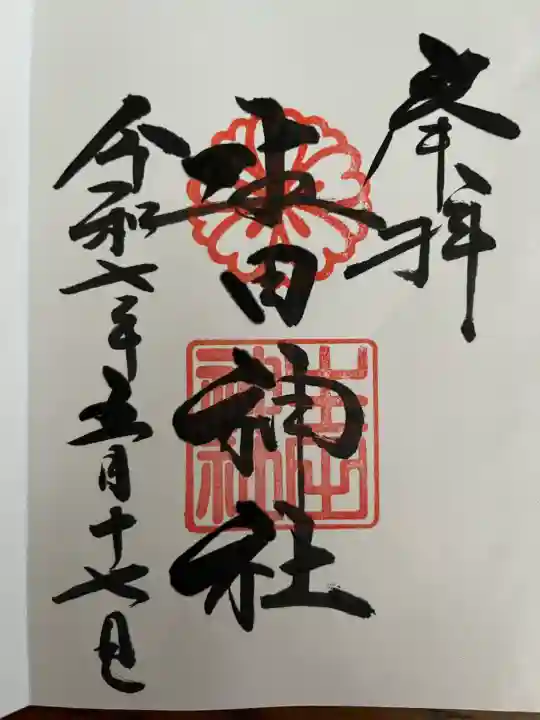 奉拝
走田神社
令和七年五月十七日